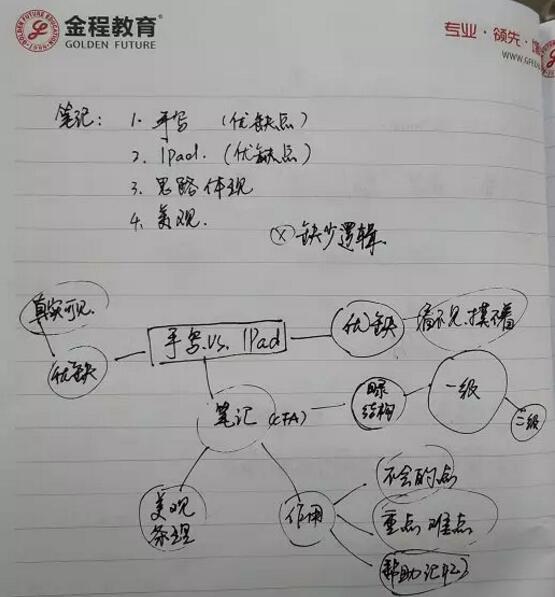 金程教育
GOLDEN FUTURE
专业·领先·
WWW.GFEDU
笔记: 1. 手写 (优缺点)
2. IPad. (优缺点)
3. 思路体现
4. 美观.
ⓧ 缺少逻辑.
真实可见.
手写 vs. IPad
优缺
优缺
看不见.摸不着
笔记 (CFA)
目录
结构
一级
二级
美观
条理
作用
不会的点
重点难点
帮助记忆